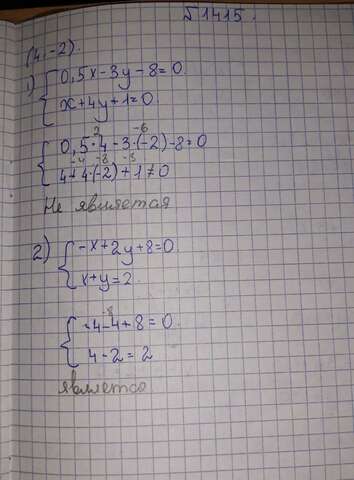 №1415.
(4,-2).
1) { 0,5x-3y-8=0
x+4y+1=0.
2 -6
{ 0,5·4-3·(-2)-8=0
-4 -8 -3
4+4·(-2)+1≠0
Не является
2) { -x+2y+8=0.
x+y=2
-8
{ -4-4+8=0.
4-2=2
является